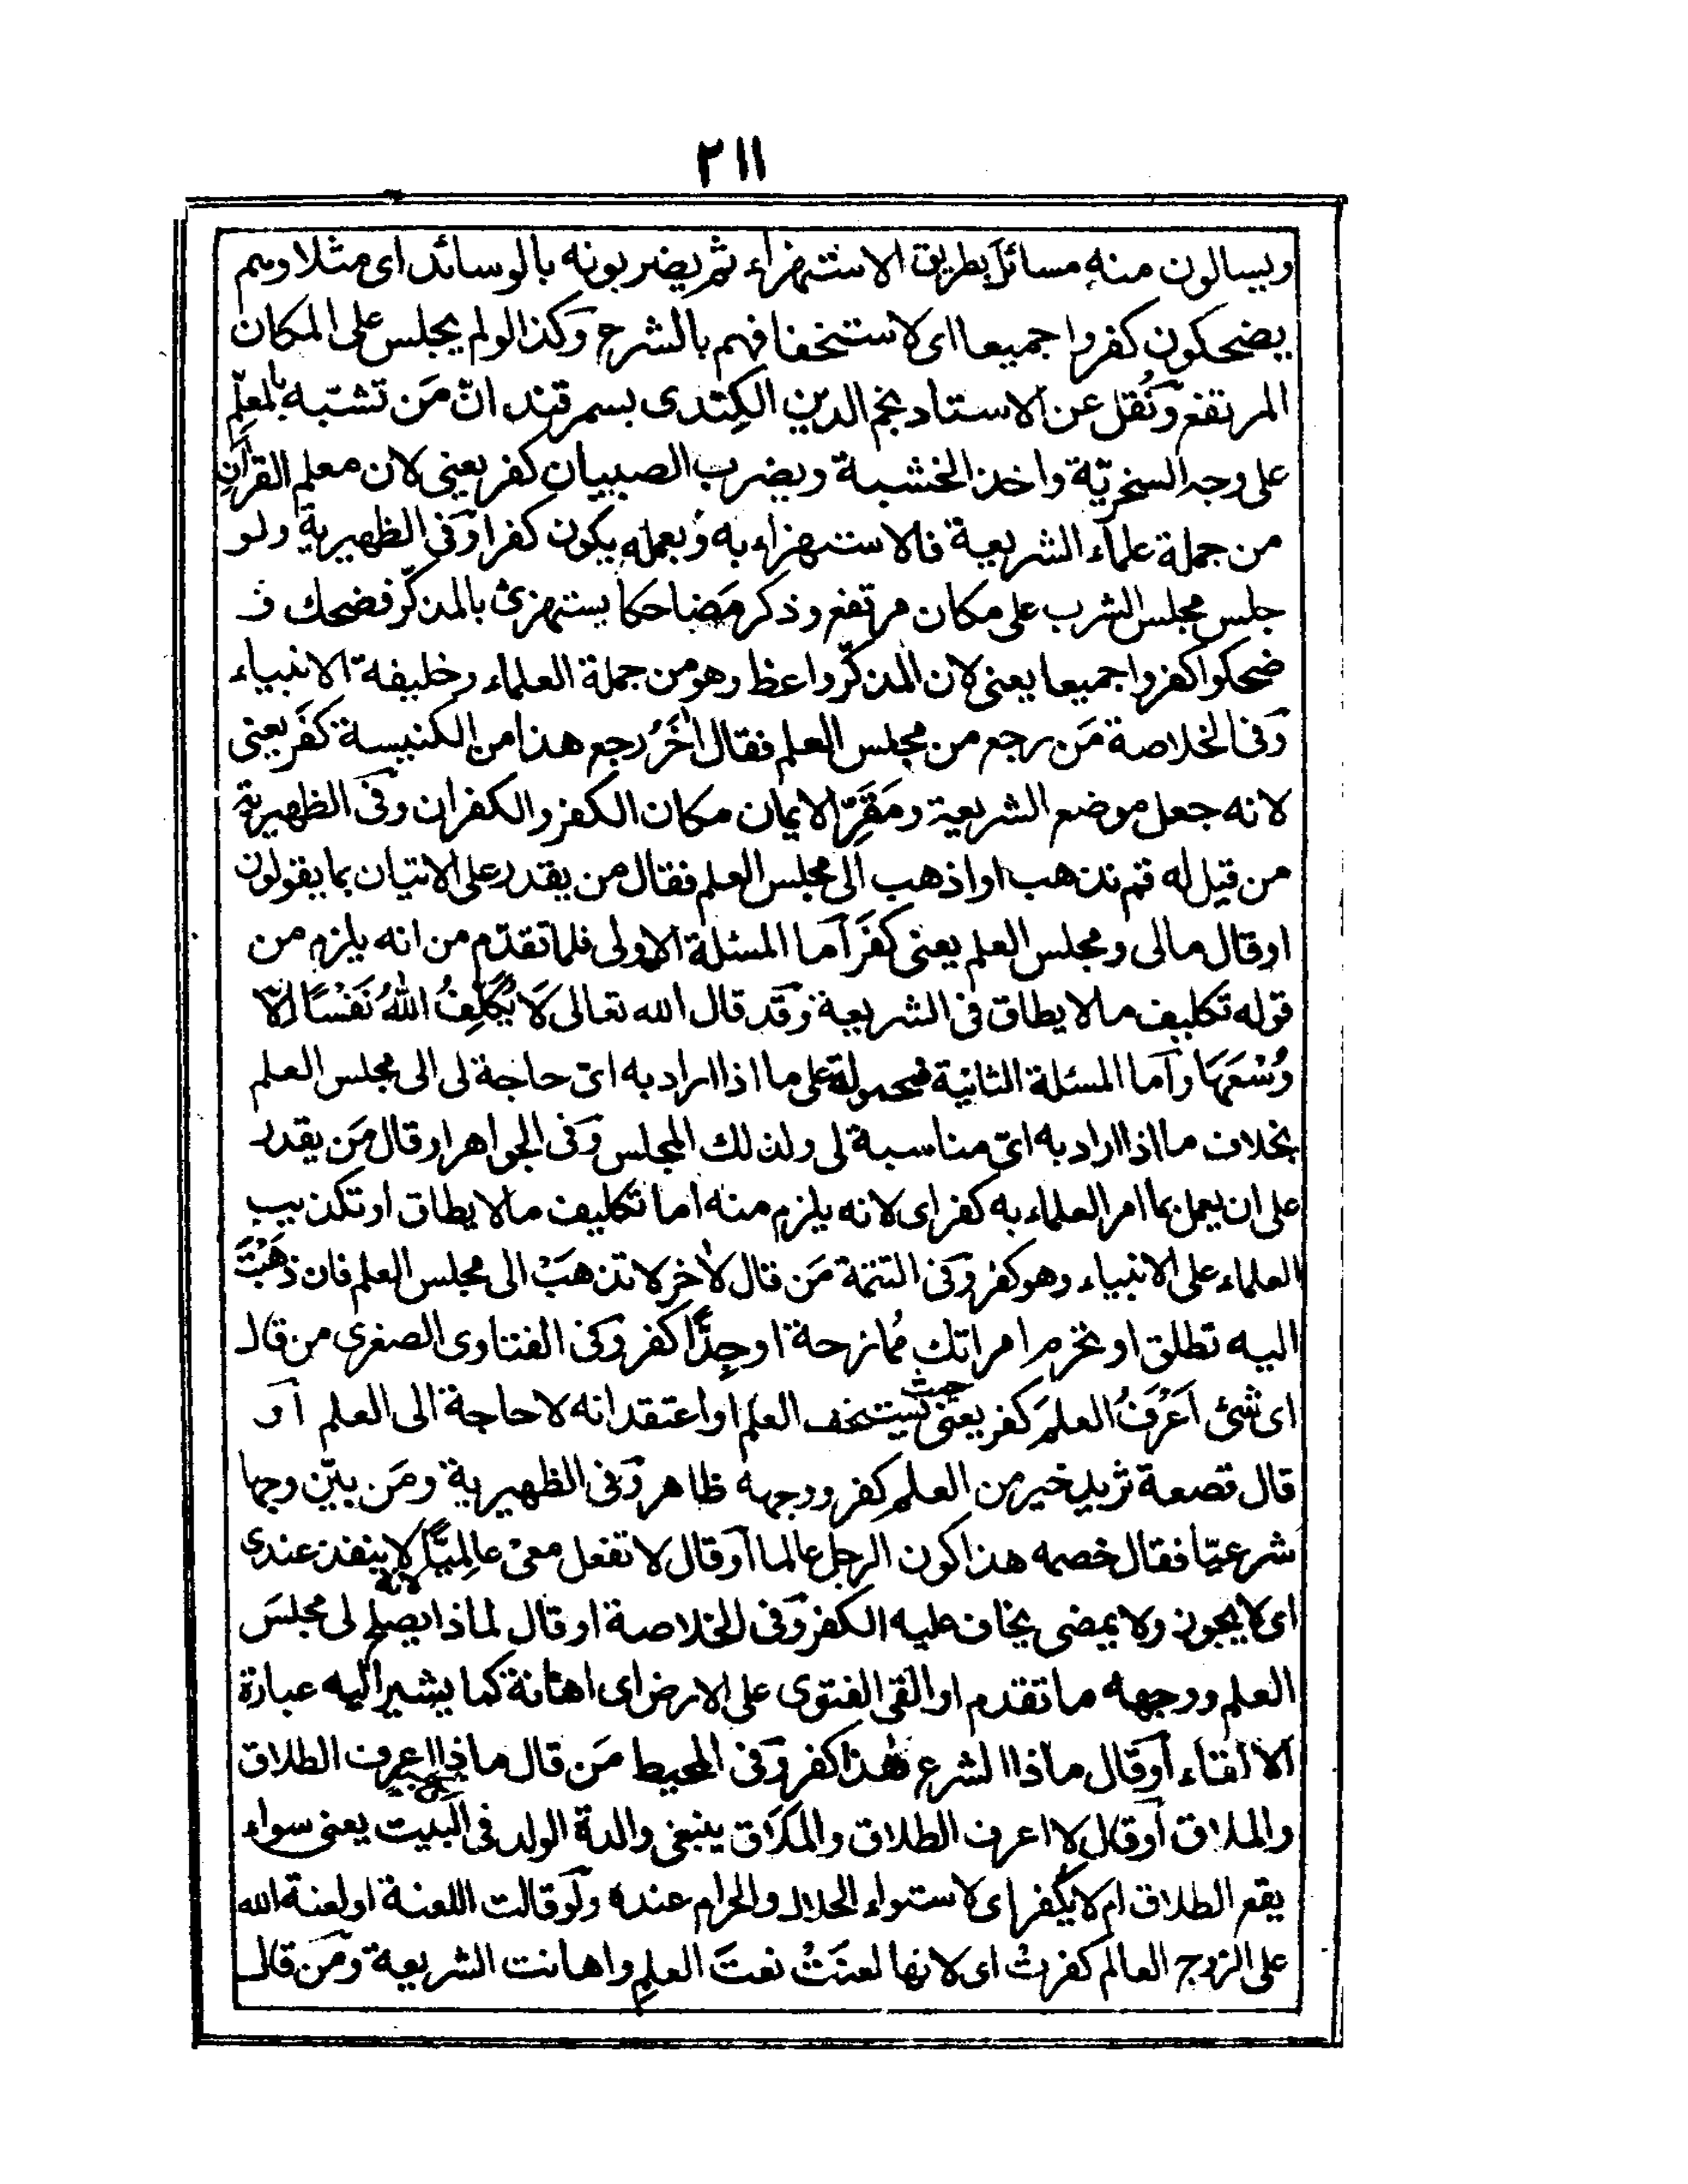 ٢١١
ويسالون منه مسائل بطريق الاستهزاء ثم يضربونه بالوسائد اى مثلا وهم
يضحكون كفروا جميعا اى لاستخفافهم بالشرع وكذا لو لم يجلس على المكان
المرتفع ونُقل عن الاستاد نجم الدين الكِندى بسمرقند انّ مَن تشبّه بالمعلّم
على وجه السخريّة واخذ الخشبة ويضرب الصبيان كفر يعنى لان معلم القرآن
من جملة علماء الشريعة فالاستهزاء به وبعمله يكون كفرا وفى الظهيرية ولو
جلس مجلس الشرب على مكان مرتفع وذكر مَضاحكا يستهزئ بالمذكّر فضحك و
ضحكوا كفروا جميعا يعنى لان المذكّر واعظ وهو من جملة العلماء وخليفة الانبياء
وفى الخلاصة مَن رجع من مجلس العلم فقال اٰخَرُ رجع هذا من الكنيسة كفَر يعنى
لانه جعل موضع الشريعة ومَقَرّ الايمان مكان الكفر والكفران وفى الظهيرية
من قيل له قم نذهب او اذهب الى مجلس العلم فقال من يقدر على الاتيان بما يقولون
او قال مالى ومجلس العلم يعنى كفَر اما المسئلة الاولى فلما تقدّم من انه يلزم من
قوله تكليف مالا يطاق فى الشريعة وقد قال الله تعالى لَا يُكَلِّفُ اللهُ نَفْسًا اِلَّا
وُسْعَهَا واما المسئلة الثانية فمحمولة على ما اذا اراد به اىّ حاجة لى الى مجلس العلم
بخلاف ما اذا اراد به اىّ مناسبة لى ولذلك المجلس وفى الجواهر او قال مَن يقدر
على ان يعمل بما امر العلماء به كفر اى لانه يلزم منه اما تكليف مالا يطاق او تكذيب
العلماء على الانبياء وهو كفر وفى التتمة مَن قال لاٰخر لا تذهبْ الى مجلس العلم فان ذهبْتَ
اليه تطلق او تحرم امراتك مُمازحة او جِدًّا كفر وفى الفتاوى الصغرى من قال
اى شئ اَعْرَفُ العلمَ كفر يعنى حيث يستخف العلم او اعتقد انه لا حاجة الى العلم او
قال قصعة ثريد خير من العلم كفر ووجهه ظاهر وفى الظهيرية ومَن بيّن وجها
شرعيّا فقال خصمه هذا كون الرجل عالما او قال لا تفعل معى عالِميًّا لانه لا ينفذ عندى
اى لا يجوز ولا يمضى يخاف عليه الكفر وفى الخلاصة او قال لماذا يصلح لى مجلسَ
العلم ووجهه ما تقدم او القى الفتوى على الارض اى اهانة كما يشير اليه عبارة
الالقاء او قال ماذا الشرع هٰذا كفر وفى المحيط مَن قال ماذا اعرف الطلاق
والملاق او قال لا اعرف الطلاق والمَلَاق ينبغى والدة الولد فى البيت يعنى سواء
يقع الطلاق ام لا يكفر اى لاستواء الحلال والحرام عنده ولو قالت اللعنة او لعنة الله
على الزوج العالم كفرتْ اى لانها لعنَتْ نعتَ العلمِ واهانت الشريعة ومَن قال